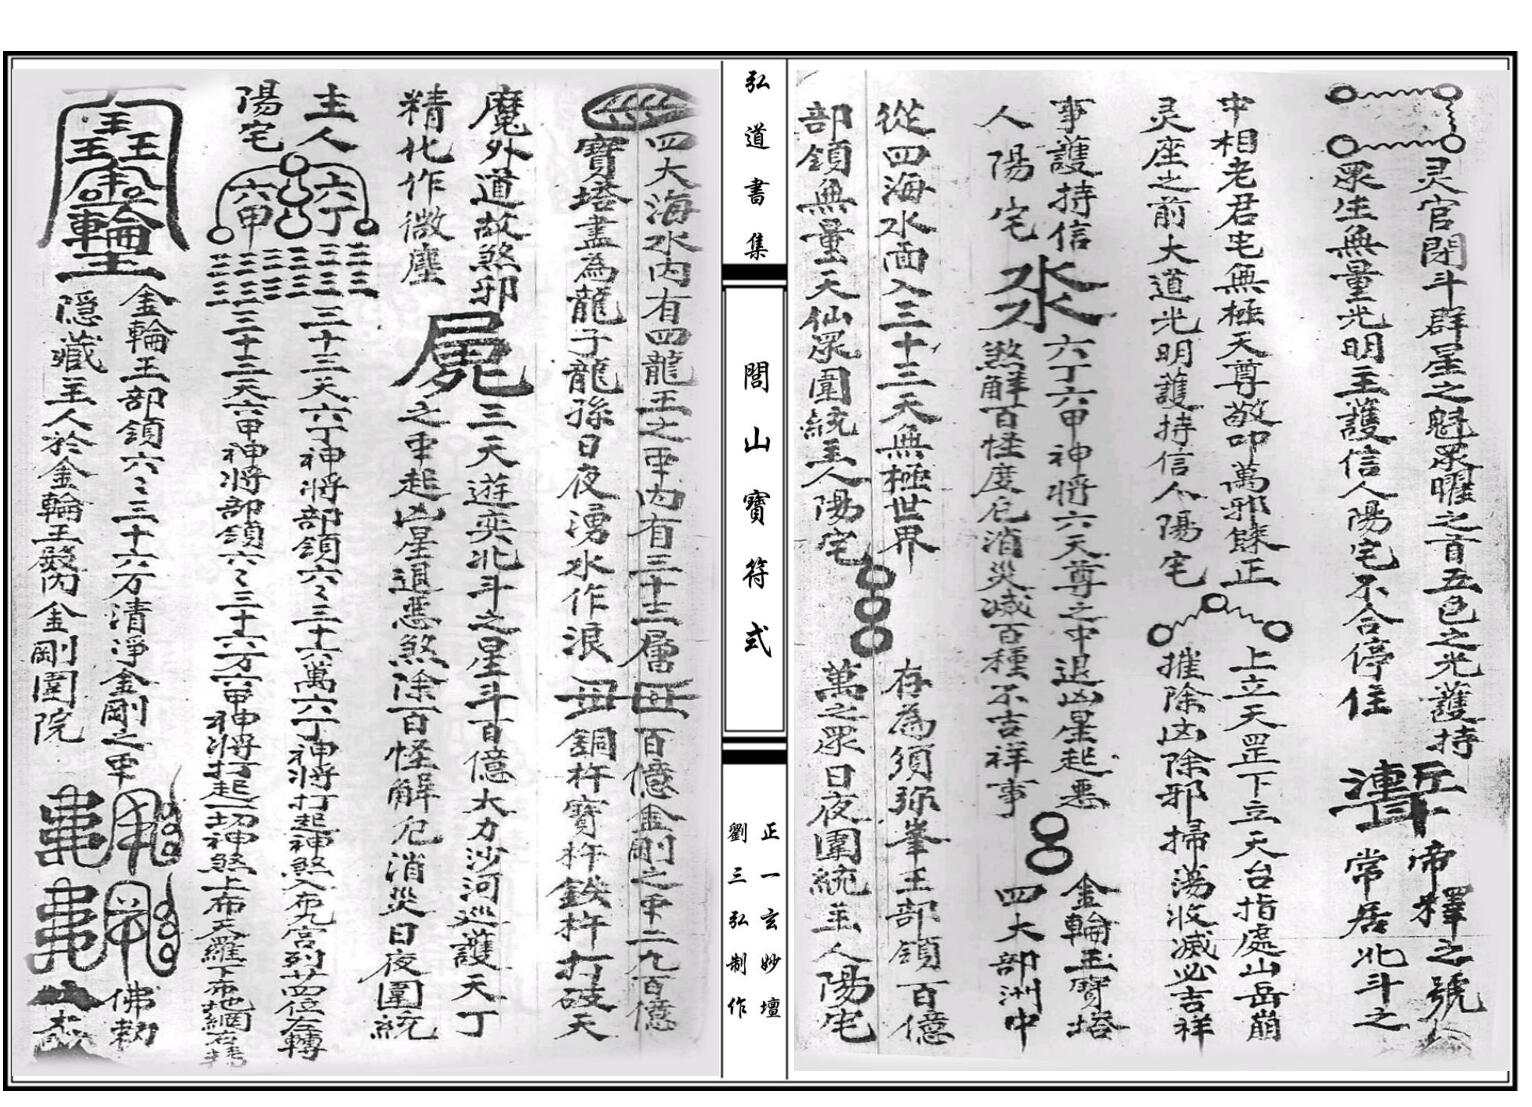 灵官閉斗群星之魁眾曜之首五色之光護持
眾生無量光明主護信人陽宅不合停住
帝釋之號
常居北斗之
中相老君宅無極天尊敬叩萬邪歸正
灵座之前大道光明護持信人陽宅
上立天罡下立天台指處山岳崩
摧除凶除邪掃蕩收滅必吉祥
事護持信
人陽宅
水
六丁六甲神将六天尊之中退凶星起悪
煞解百怪度厄消災滅百種不吉祥事
金輪王寶塔
四大部洲中
從四海水面入三十三天無極世界
部領無量天仙眾圍統主人陽宅
存為須弥峯王部領百億
萬之眾日夜圍統主人陽宅
弘道書集
閭山寶符式
正一玄妙壇
劉三弘制作
四大海水内有四龍王之中内有三十三層
寶塔盡為龍子龍孫日夜湧水作浪
百億金剛之中二九百億
銅杵寶杵鉄杵打破天
魔外道故煞邪
精化作微塵
三天遊奕北斗之星斗百億大力沙河巡護天丁
之中起凶星退恶煞除百怪解厄消災日夜圍統
主人
陽宅
六丁
六甲
三十三天六丁神将部領六〻三十六萬六丁神将打起神煞入布九宫列
三十三天六甲神将部領六〻三十六万六甲神将打起一切神煞上布天羅下布地網
王王王金輪王
金輪王部領六〻三十六万清淨金剛之中
隠藏主人於金輪王殿内金剛圍院
佛勑